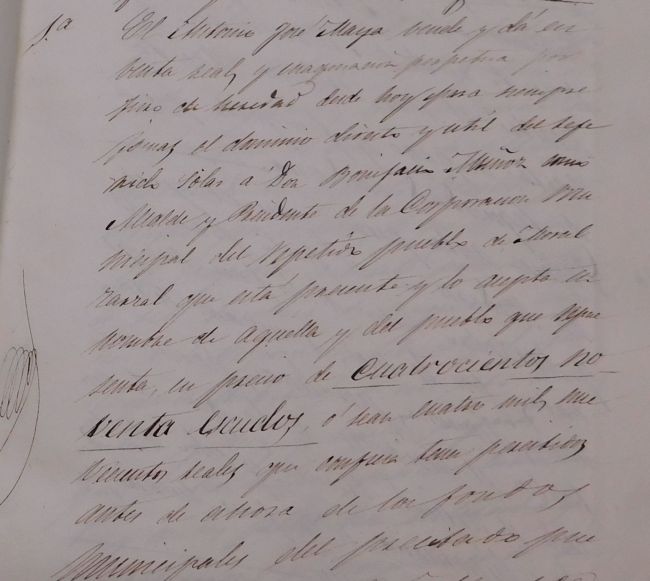 1.ª El Antonio José Maya vende y dá en
venta real, y enagenacion perpetua por
juro de heredad desde hoy para siempre
jamas, el dominio directo y util del refe
rido Solar á Don Bonifacio Muñoz como
Alcalde y Presidente de la Corporacion Mu
nicipal del repetido pueblo de Moral
zarzal que está presente y lo acepta en
nombre de aquella y del pueblo que repre
senta, en precio de cuatrocientos no
venta escudos, ó sean cuatro mil, nue
vecientos reales que confiesa tener percibidos
antes de ahora de los fondos
municipales del precitado pue